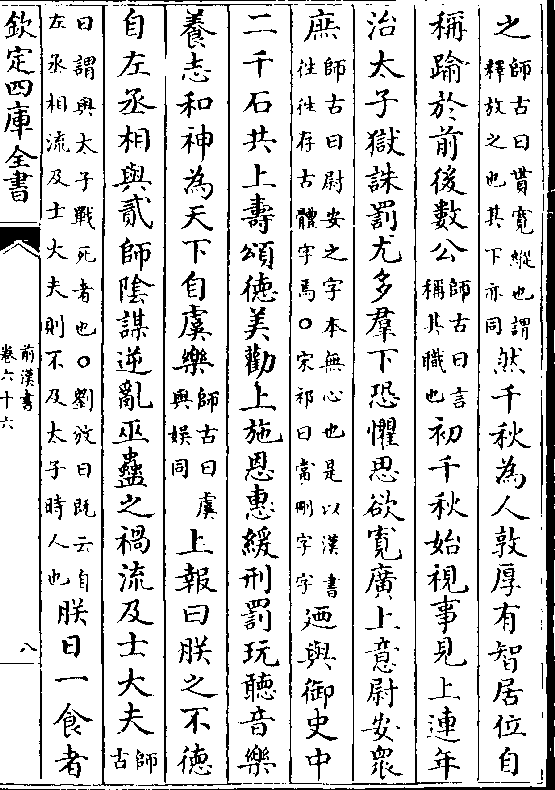 之師古曰貰寛縱也謂釋放之也其下亦同然千秋為人敦厚有智居位自
稱踰於前後數公師古曰言稱其職也初千秋始視事見上連年
治太子獄誅罰尤多羣下恐懼思欲寛廣上意尉安衆
庶師古曰尉安之字本無心也是以漢書徃徃存古體字焉○宋祁曰當刪字字廼與御史中
二千石共上壽頌徳美勸上施恩惠緩刑罰玩聽音樂
養志和神為天下自虞樂師古曰虞與娱同上報曰朕之不徳
自左丞相與貳師隂謀逆亂巫蠱之禍流及士大夫師古
曰謂與太子戰死者也○劉攽曰既云自左丞相流及士大夫則不及太子時人也朕日一食者
欽定四庫全書
前漢書
卷六十六
八